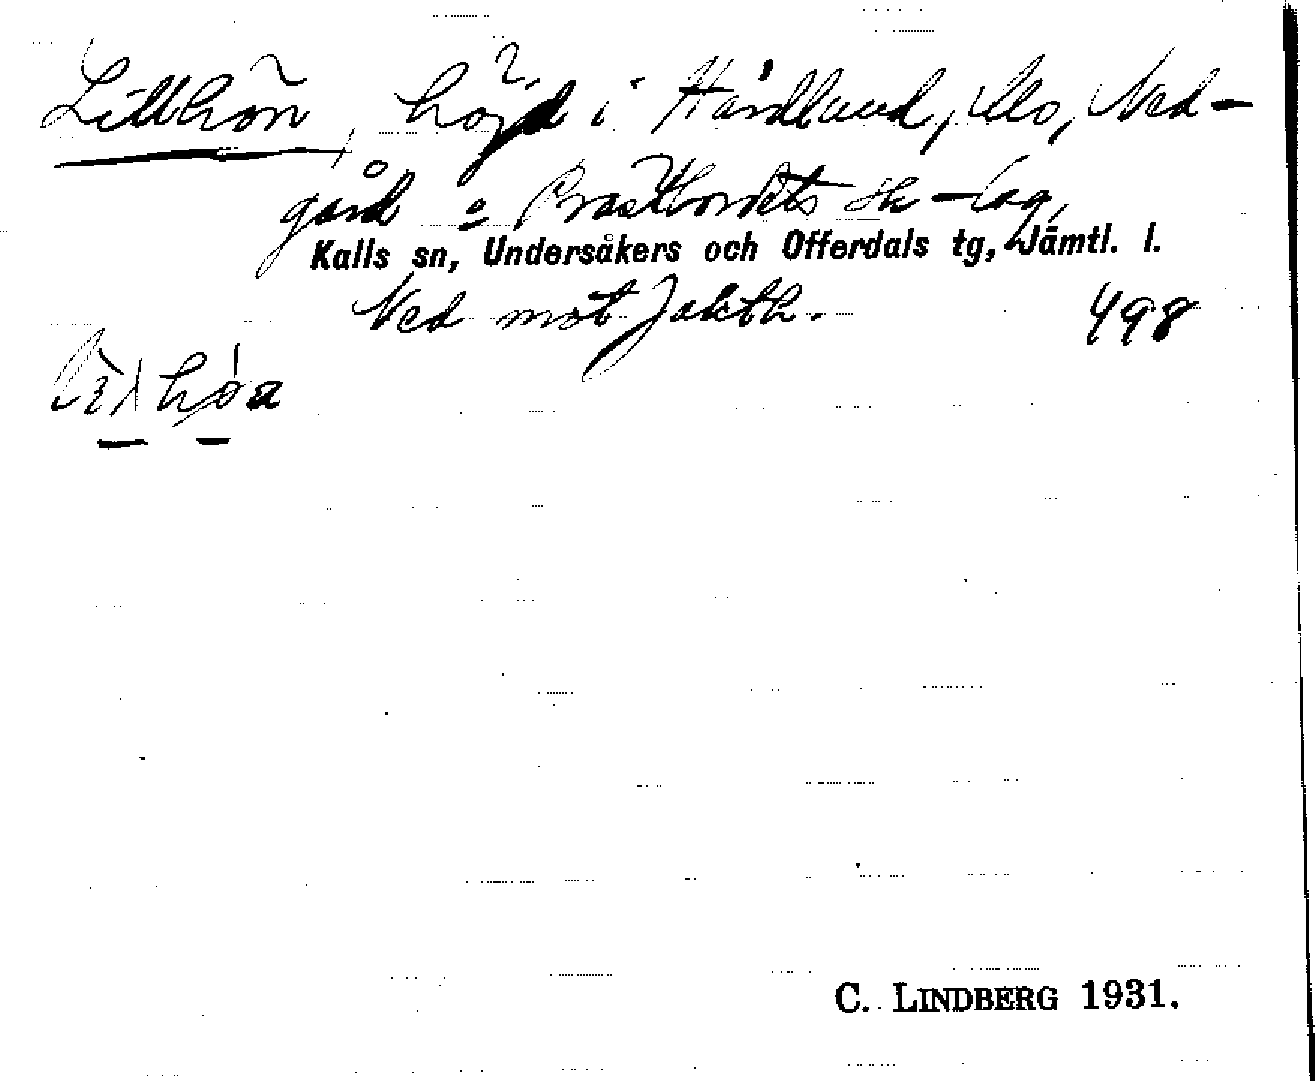 Lillhön, höjd i Hårdlund, Slo, Ned-
gård o Prästbordets sk-lag,
Kalls sn, Undersåkers och Offerdals tg, Jämtl. l.
Ned mot Jakth. 498
høa
C. LINDBERG 1931.